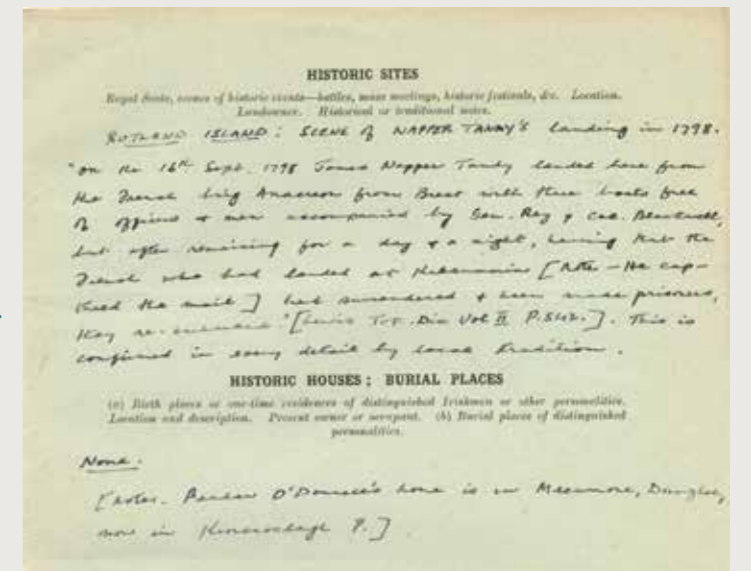 HISTORIC SITES
Royal Seats, scenes of historic events—battles, mass meetings, historic festivals, &c. Location.
Landowner. Historical or traditional notes.
RUTLAND ISLAND: SCENE of NAPPER TANDY'S landing in 1798.
"On the 16th Sept. 1798 James Napper Tandy landed here from
the French brig Anacreon from Brest with three boats full
of officers & men accompanied by Gen. Rey & Col. Blackwell,
but after remaining for a day & a night, hearing that the
French who had landed at [Note - He cap-
tured the mail] had surrendered & been made prisoners,
they re-embarked" [Lewis Top. Dic Vol II P.542.]. This is
confirmed in every detail by local tradition.
HISTORIC HOUSES; BURIAL PLACES
(a) Birth places or one-time residences of distinguished Irishmen or other personalities.
Location and description. Present owner or occupant. (b) Burial places of distinguished
personalities.
None.
[Notes. Peadar O'Donnell's home is in Meenmore, Dungloe,
now in ?.]